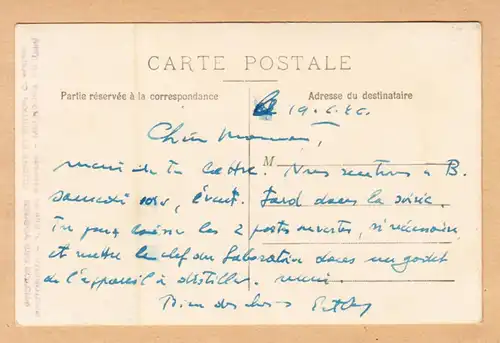 CARTE POSTALE
Partie réservée à la correspondance
Adresse du destinataire
19.6.26.
Chère Maman,
M
merci de ta lettre. Nous rentrons à B.
samedi soir, évent. tard dans la soirée.
Tu peux laisser les 2 portes ouvertes, si nécessaire
et mettre la clef du laboratoire dans un godet
de l'appareil à distiller. merci.
Bien des bises